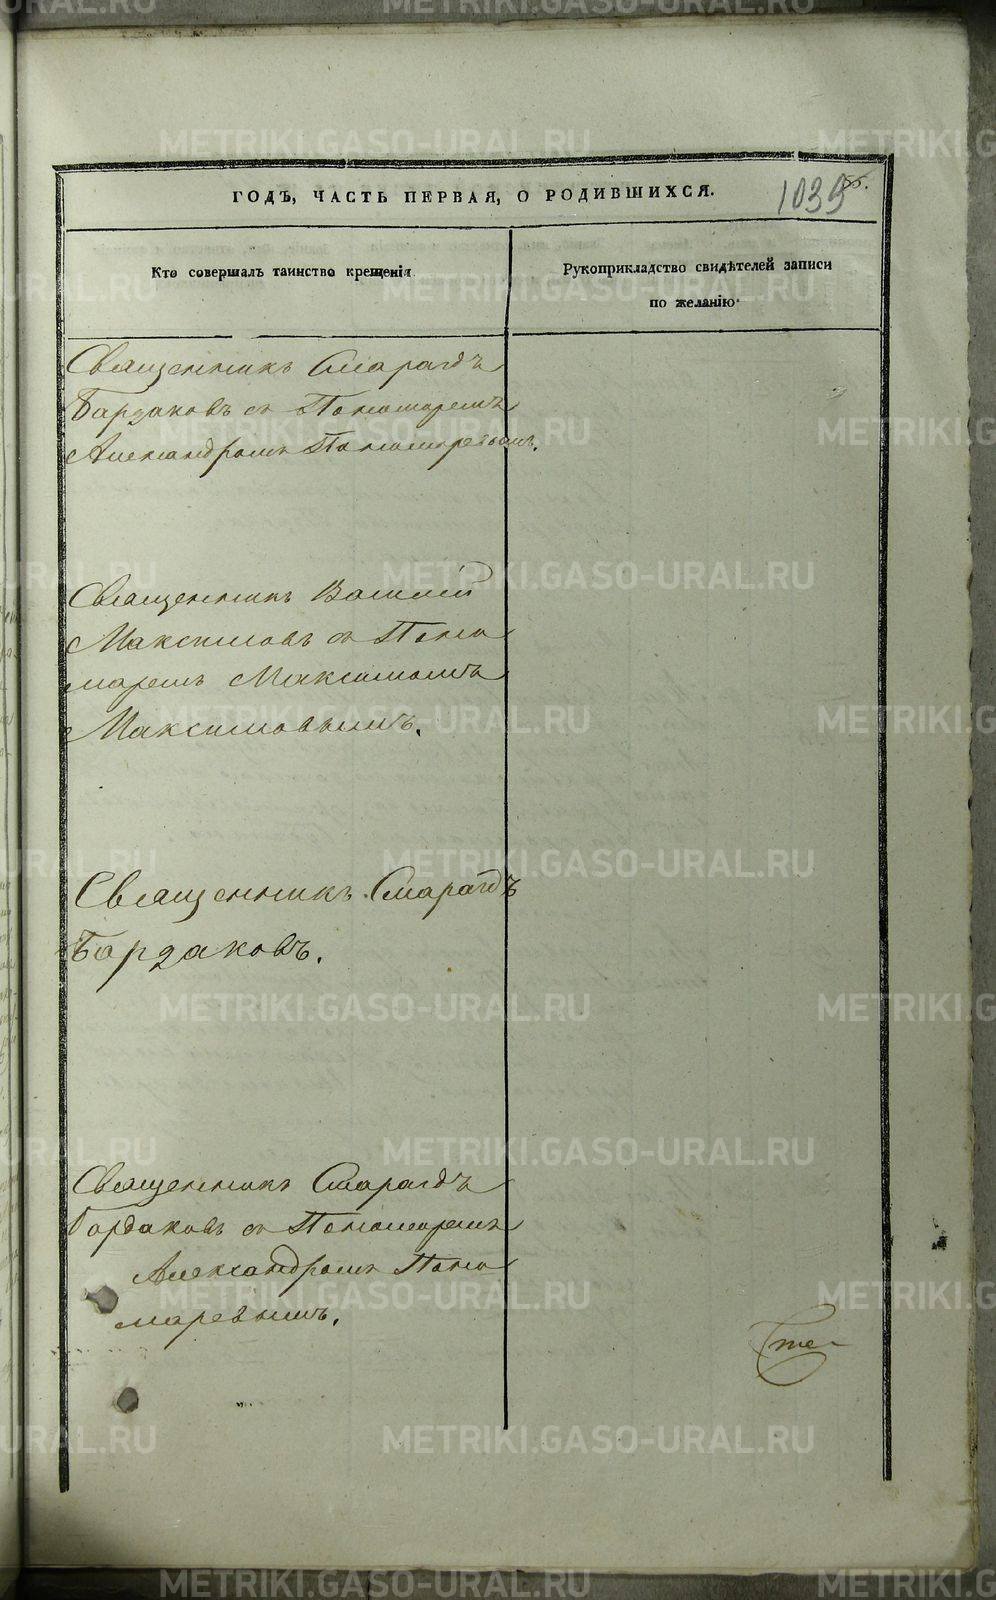 ГОДЪ, ЧАСТЬ ПЕРВАЯ, О РОДИВШИХСЯ.
1039
Кто совершалъ таинство крещенія
Рукоприкладство свидѣтелей записи
по желанію
Священникъ Смарагдъ
Бардаковъ съ Пономаремъ
Александромъ Пономаревымъ.
Священникъ Василій
Максимовъ съ Поно
маремъ Максимомъ
Максимовымъ.
Священникъ Смарагдъ
Бардаковъ.
Священникъ Смарагдъ
Бардаковъ съ Пономаремъ
Александромъ Поно
маревымъ.
METRIKI.GASO-URAL.RU